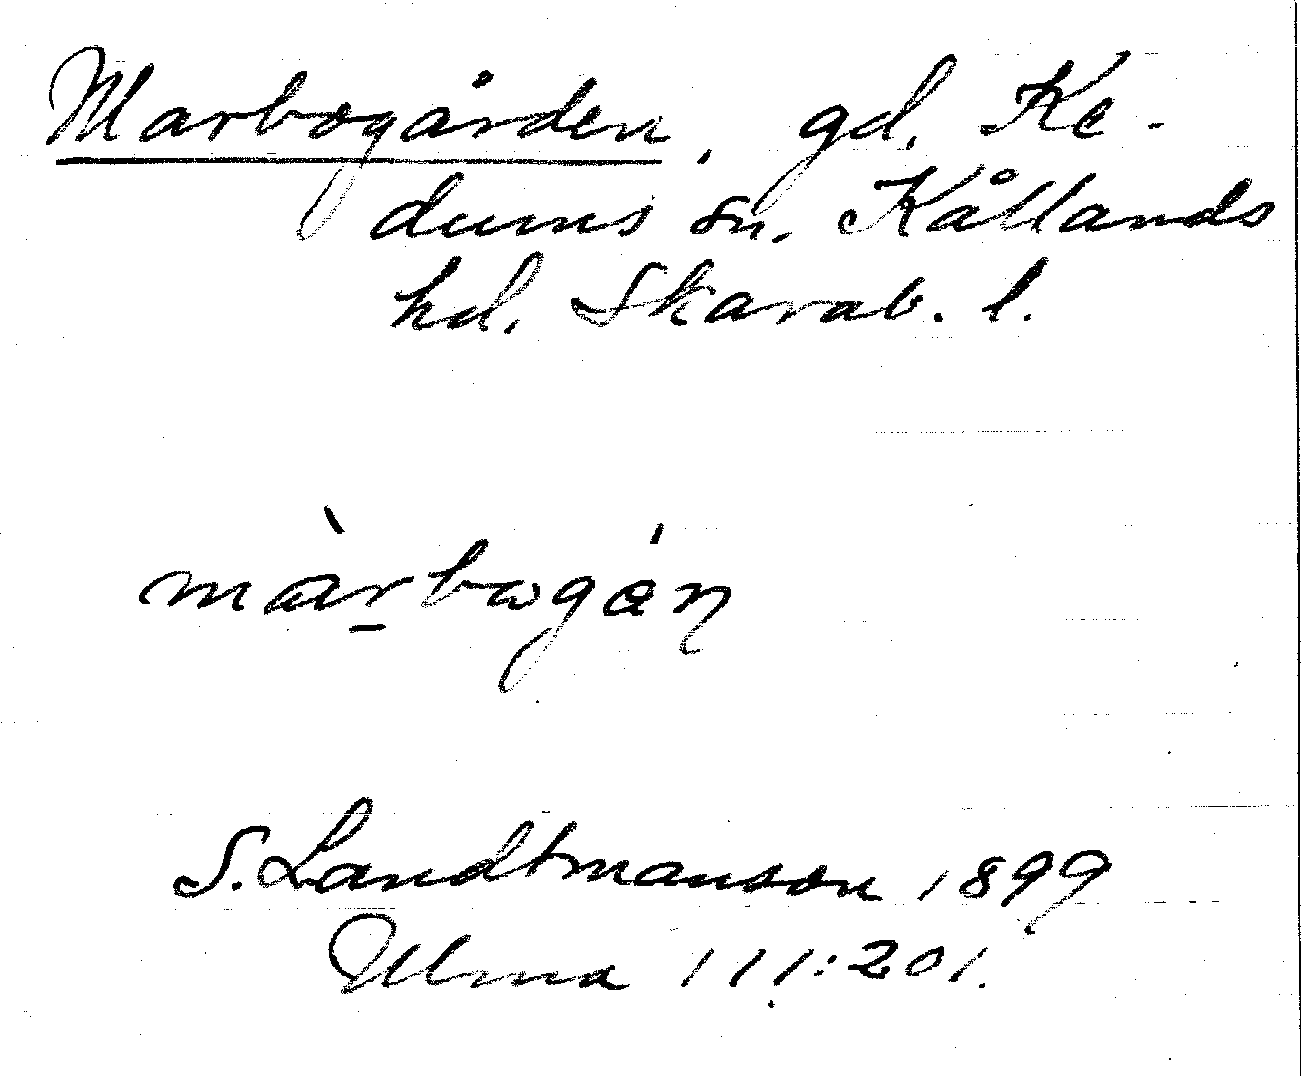 Marbogården, gd. Ke-
dums sn. Kållands
hd. Skarab. l.
S. Landtmanson 1899
Ulma 111:201.